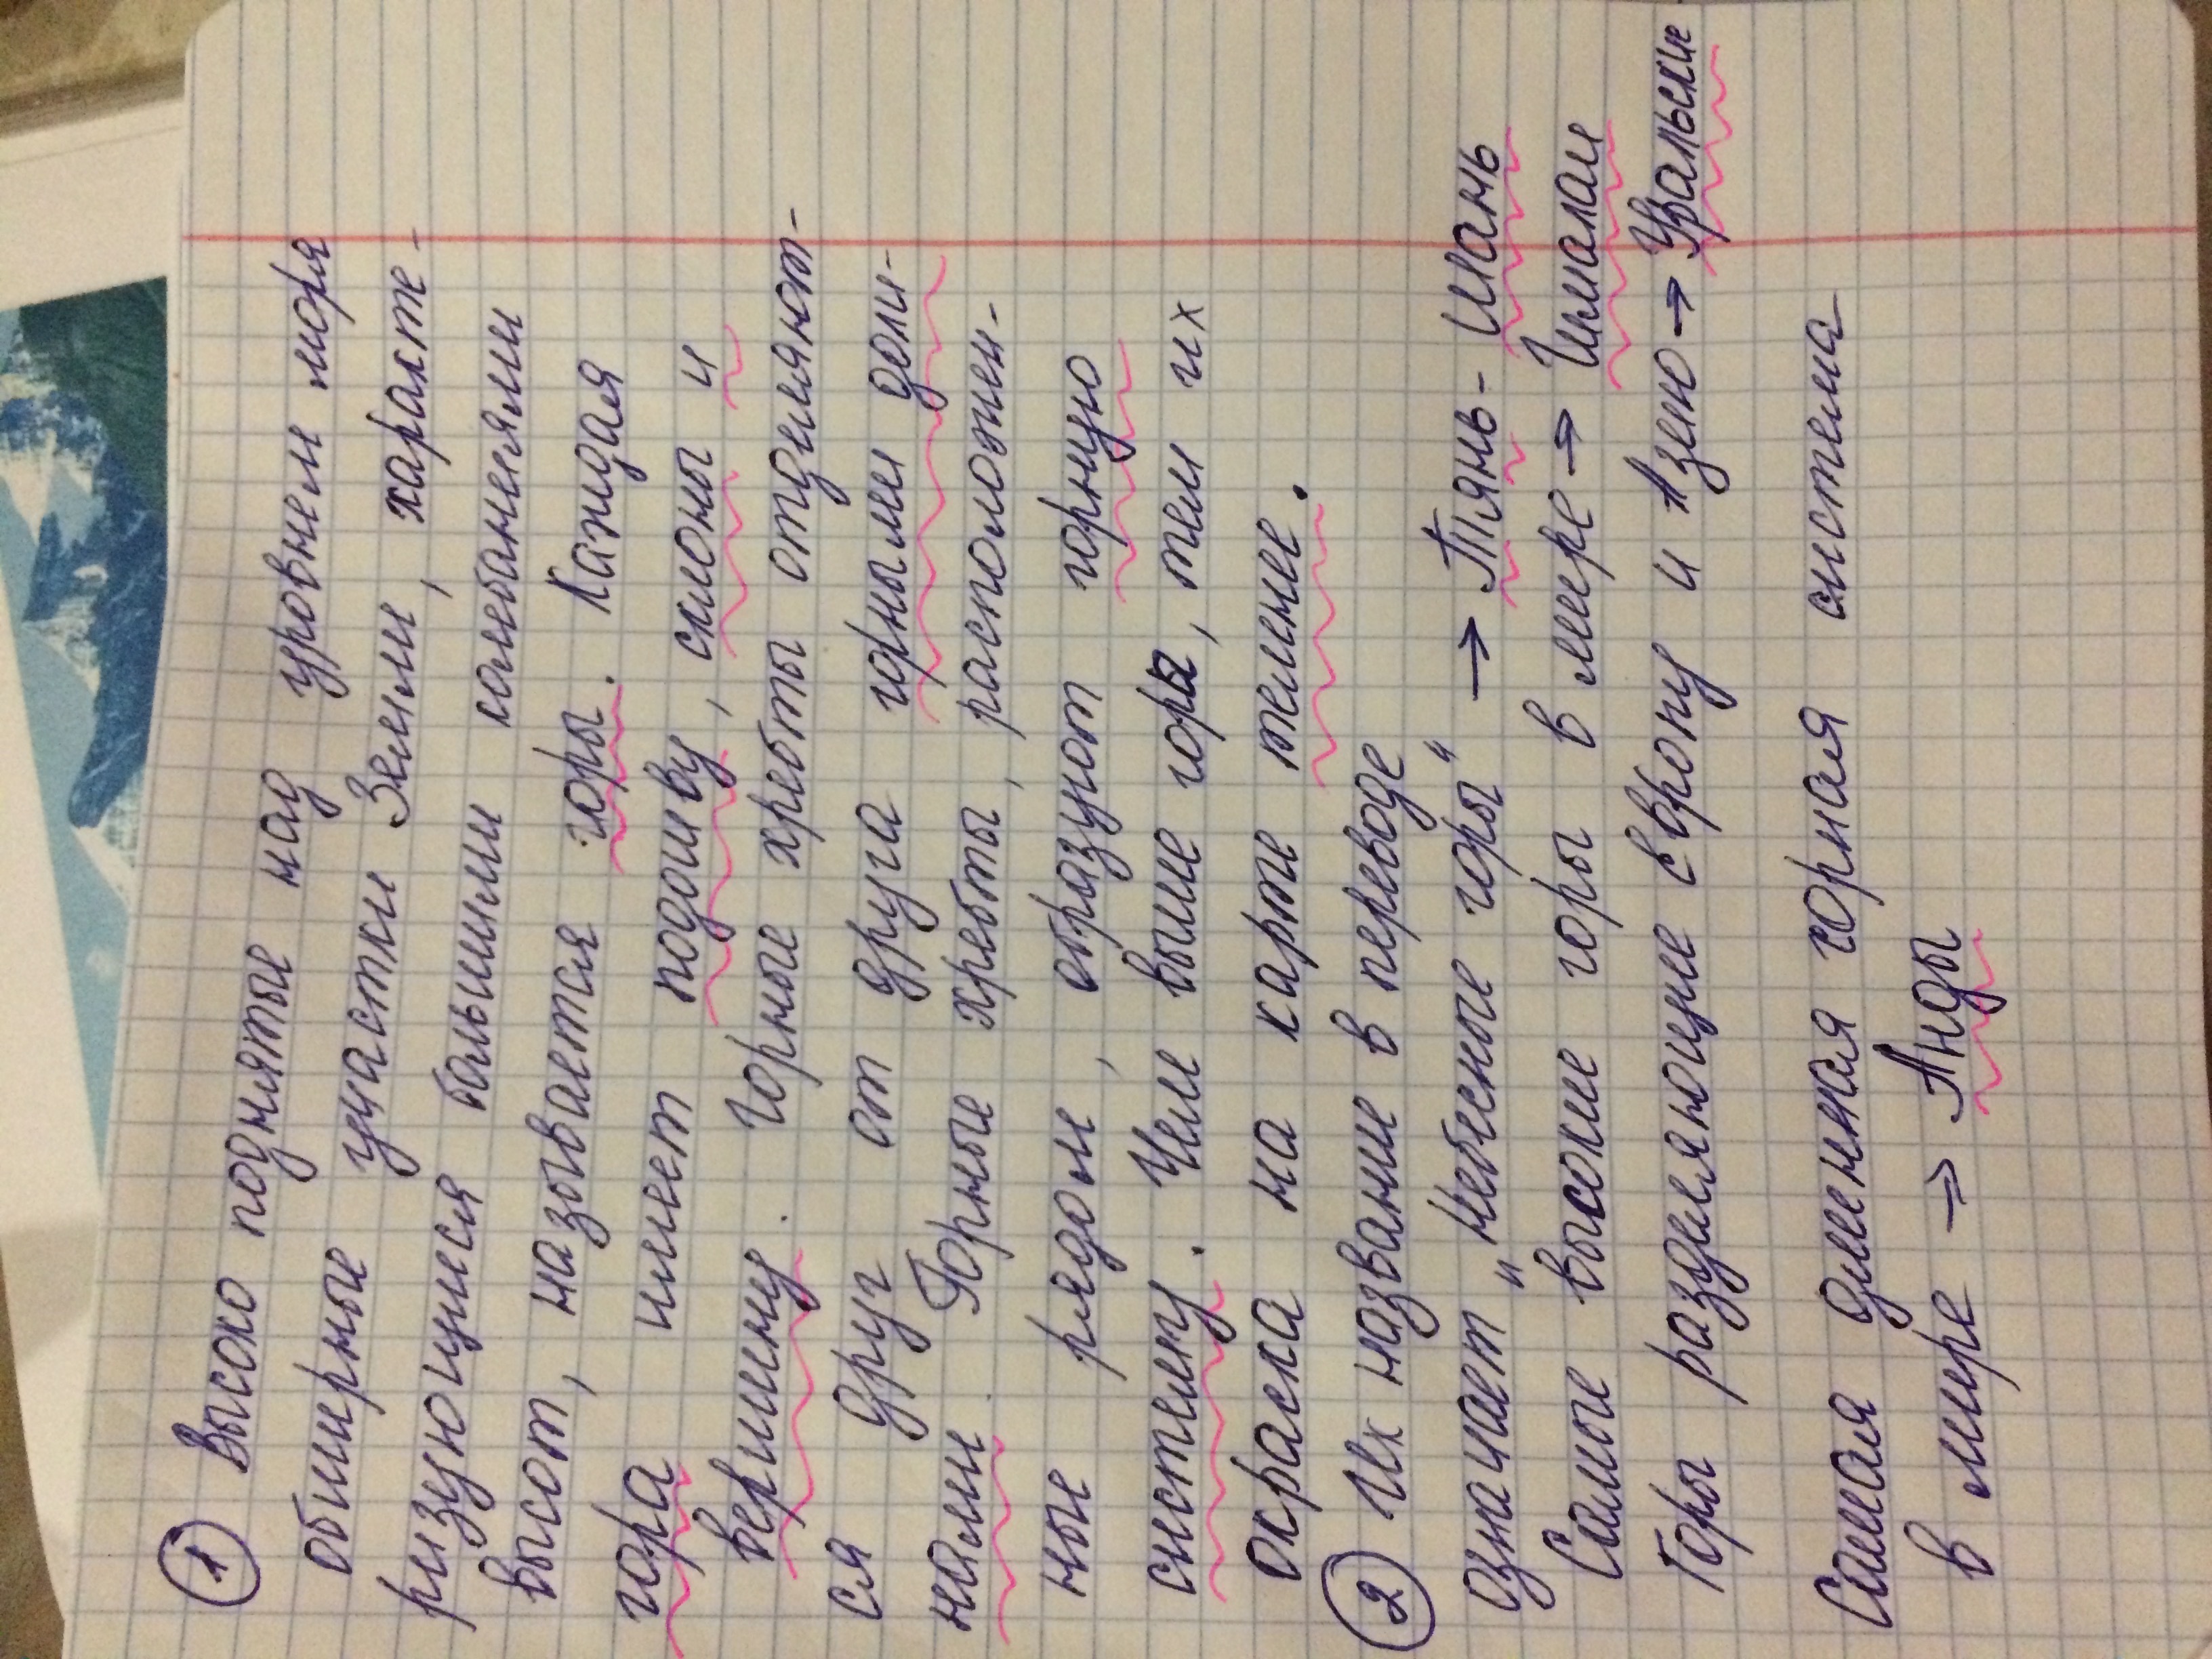 ① Высоко поднятые над уровнем моря
обширные участки Земли, характе-
ризующиеся большими колебаниями
высот, называется горы. Каждая
гора имеет подошву, склоны и
вершину. Горные хребты отделяют-
ся друг от друга горными доли-
нами. Горные хребты, расположен-
ные рядом, образуют горную
систему. Чем выше горы, тем их
окраска на карте темнее.
② Их название в переводе
означает "Небесные горы" → Тянь-Шань
Самые высокие горы в мире → Гималаи
Горы разделяющие Европу и Азию → Уральские
Самая длинная горная система
в мире → Анды